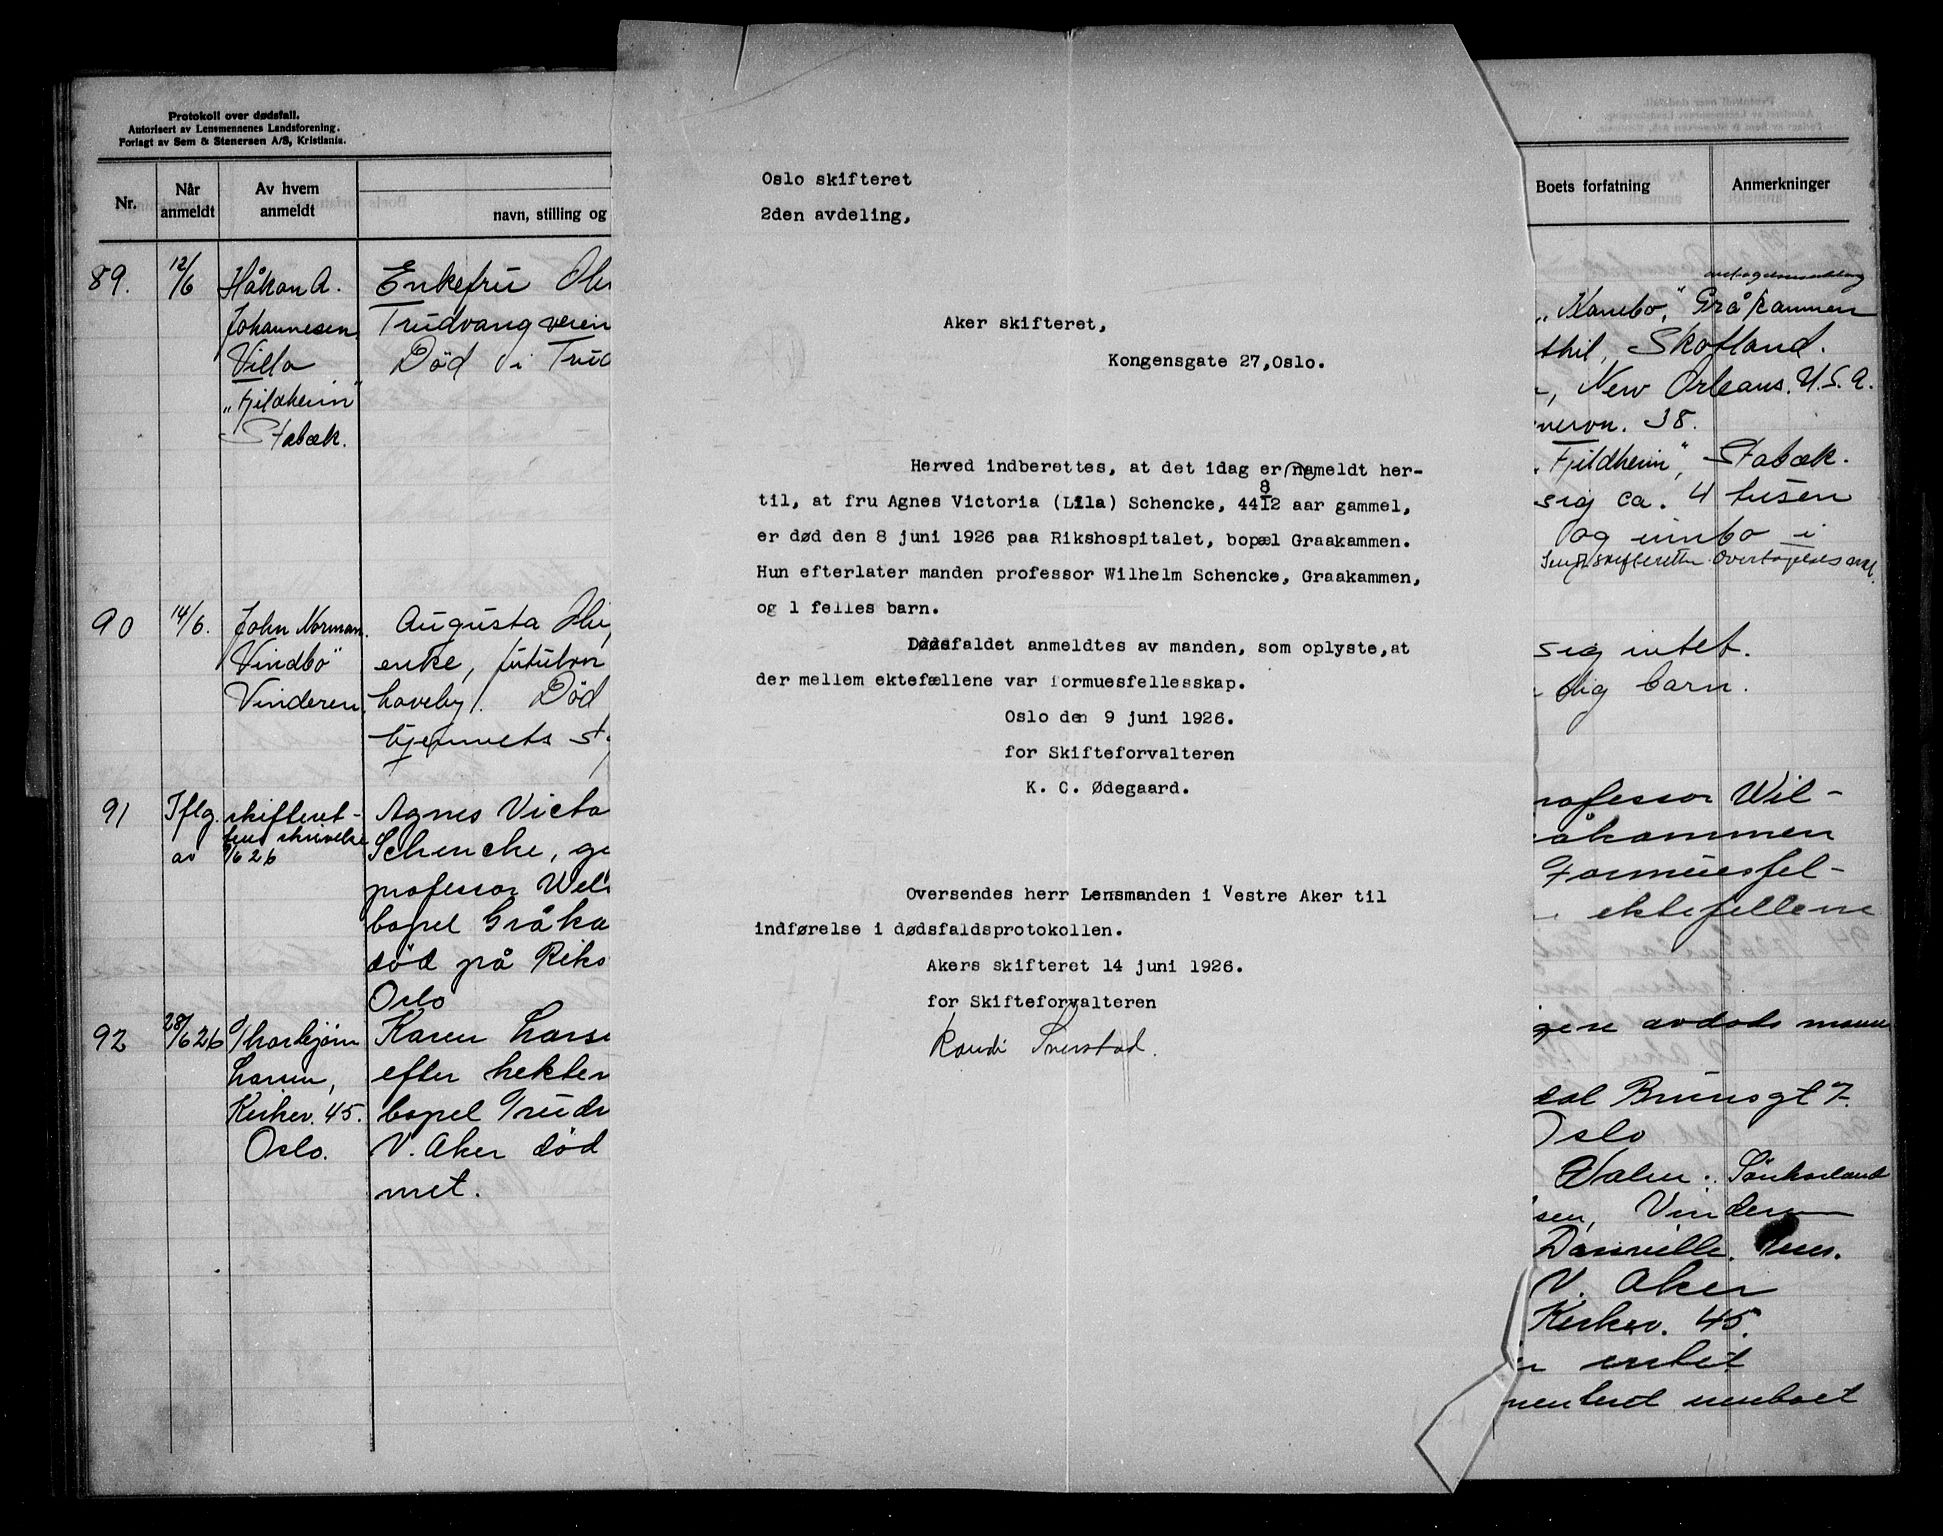 Protokoll over dødsfall.
Autorisert av Lensmennenes Landsforening.
Forlagt av Sem & Stenersen A/S, Kristiania.
Nr.
Når anmeldt
Av hvem anmeldt
navn, stilling og
89.
12/6
Håkon A.
Johannesen,
Villa
"Fjeldheim"
Stabæk.
Enkefru
Trudvangveien
Død i Trud
90
14/6.
John Norman.
Vindbo"
Vinderen,
Augusta
enke,
Død
hjemmets
91
Iflg. skifteret-
tens skrivelse
av 9/6 26
Agnes Victo
Schencke, g
professor Wil
bopel Gråka
død på Riks
Oslo
92
28/6 26
Thorbjørn
Larsen,
Kirkev. 45.
Oslo.
Karen Lars
efter
bopel Trudv
V. Aker død
met.
Oslo skifteret
2den avdeling,
Aker skifteret,
Kongensgate 27, Oslo.
Herved indberettes, at det idag er nameldt her-
til, at fru Agnes Victoria (Lila) Schencke, 44 8/12 aar gammel,
er død den 8 juni 1926 paa Rikshospitalet, bopæl Graakammen.
Hun efterlater manden professor Wilhelm Schencke, Graakammen,
og 1 felles barn.
Dødsfaldet anmeldtes av manden, som oplyste, at
der mellem ektefællene var formuesfellesskap.
Oslo den 9 juni 1926.
for Skifteforvalteren
K. C. Ødegaard.
Oversendes herr Lensmanden i Vestre Aker til
indførelse i dødsfaldsprotokollen.
Akers skifteret 14 juni 1926.
for Skifteforvalteren
Randi
Boets forfatning
Anmerkninger
Gråkammen
Skotland.
New Orleans. U.S.A.
38.
Fjeldheim", Stabæk.
sig ca. 4 tusen
og innbo i
sig intet.
barn.
rofessor Wil-
åkammen
Formuesfel-
ektefellene
avdøds mann
Brunsgt 7.
Oslo
sen, Vinderen
Danville.
V. Aker
Kirkev. 45.
intet